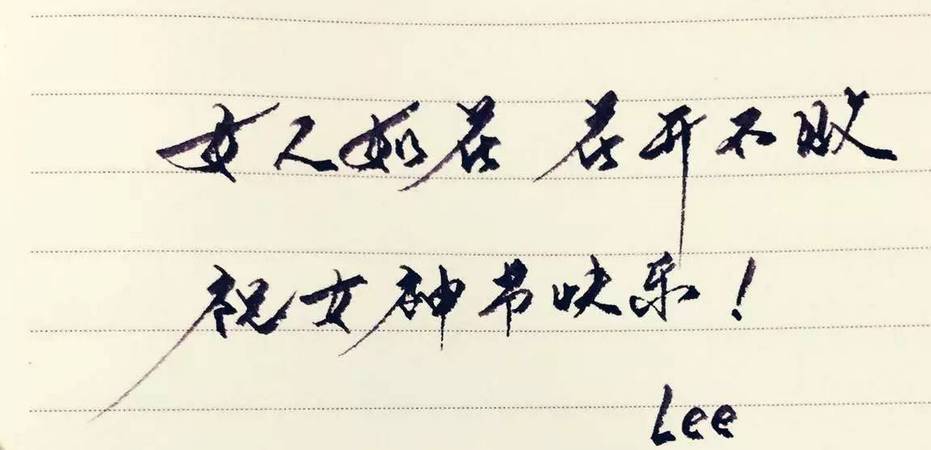 女人如花 花开不败
祝女神节快乐！
Lee